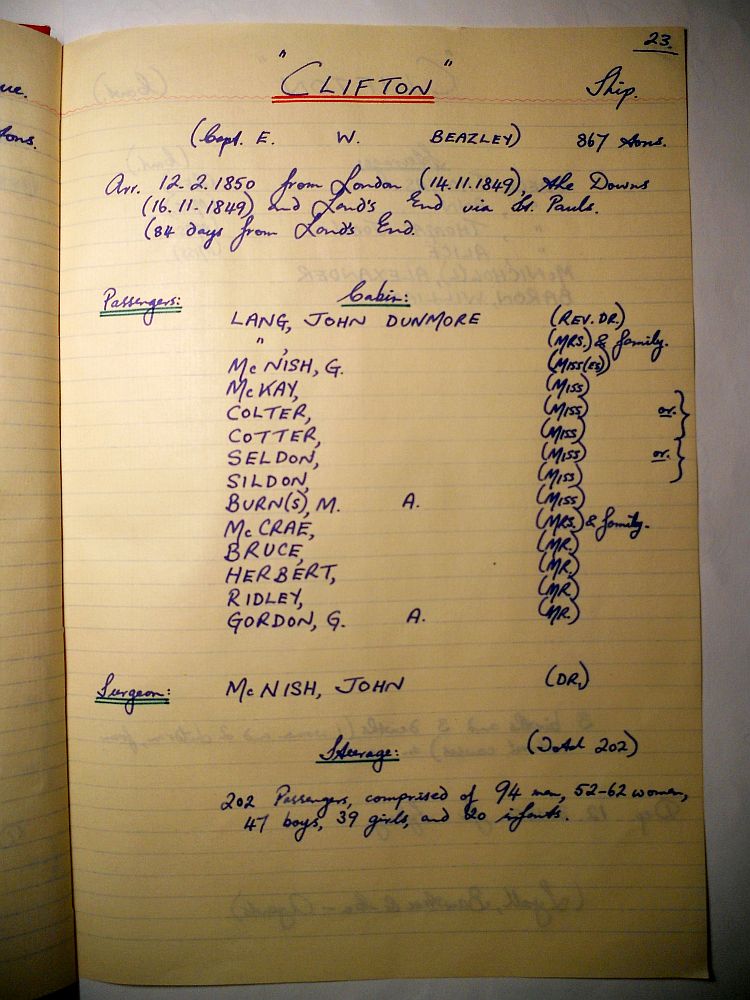 ue.
tons.
23.
"CLIFTON" Ship.
(Capt. E. W. BEAZLEY) 867 tons.
Arr. 12.2.1850 from London (14.11.1849), the Downs
(16.11.1849) and Land's End via St. Pauls.
(84 days from Land's End.
Passengers: Cabin:
LANG, JOHN DUNMORE (REV. DR.)
" , (MRS.) & family.
McNISH, G. (MISS(ES)
McKAY, (MISS)
COLTER, (MISS) or.
COTTER, (MISS)
SELDON, (MISS) or.
SILDON, (MISS)
BURN(S), M. A. (MISS)
McCRAE, (MRS.) & family.
BRUCE, (MR.)
HERBERT, (MR.)
RIDLEY, (MR.)
GORDON, G. A. (MR.)
Surgeon: McNISH, JOHN (DR.)
Steerage: (Total 202)
202 Passengers, comprised of 94 men, 52-62 women,
47 boys, 39 girls, and 20 infants.